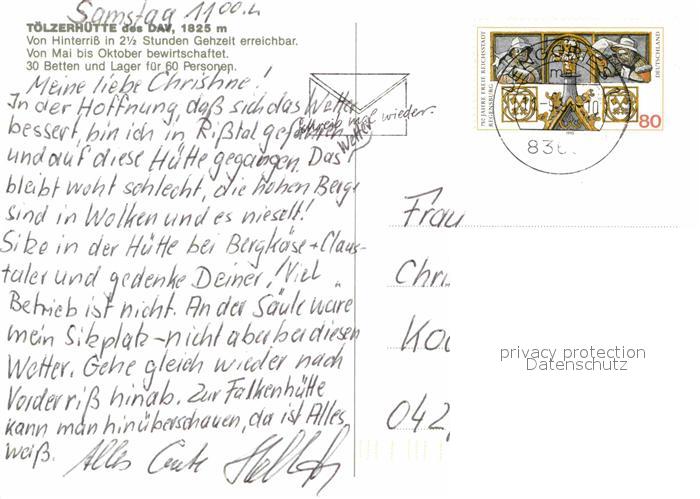 Samstag 11 00 h
TÖLZERHÜTTE des DAV, 1825 m
Von Hinterriß in 2½ Stunden Gehzeit erreichbar.
Von Mai bis Oktober bewirtschaftet.
30 Betten und Lager für 60 Personen.
Meine liebe Christine!
In der Hoffnung, daß sich das Wetter
bessert, bin ich in Rißtal gefahren
und auf diese Hütte gegangen. Das Wetter
bleibt wohl schlecht, die hohen Berge
sind in Wolken und es nieselt!
Sitze in der Hütte bei Bergkäse + Claus-
taler und gedenke Deiner! Viel
Betrieb ist nicht. An der Säule wäre
mein Sitzplatz – nicht aber bei diesem
Wetter. Gehe gleich wieder nach
Vorderriß hinab. Zur Falkenhütte
kann man hinüberschauen, da ist Alles
weiß. Alles Gute
Schreib mal wieder.
750 JAHRE FREIE REICHSSTADT
REGENSBURG
DEUTSCHLAND
80
836
Frau
Chri
Ko
042
privacy protection
Datenschutz